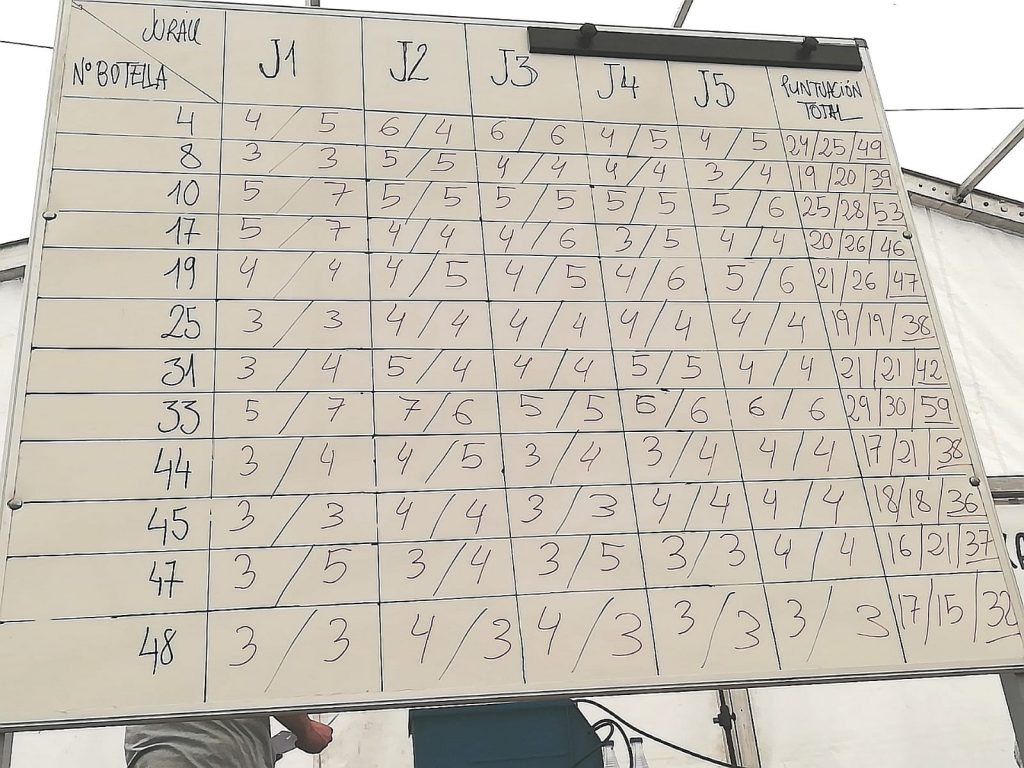 JURADO
Nº BOTELLA J1 J2 J3 J4 J5 PUNTUACIÓN
TOTAL
4 4/5 6/4 6/6 4/5 4/5 24/25/49
8 3/3 5/5 4/4 4/4 3/4 19/20/39
10 5/7 5/5 5/5 5/5 5/6 25/28/53
17 5/7 4/4 4/6 3/5 4/4 20/26/46
19 4/4 4/5 4/5 4/6 5/6 21/26/47
25 3/3 4/4 4/4 4/4 4/4 19/19/38
31 3/4 5/4 4/4 5/5 4/4 21/21/42
33 5/7 7/6 5/5 6/6 6/6 29/30/59
44 3/4 4/5 3/4 3/4 4/4 17/21/38
45 3/3 4/4 3/3 4/4 4/4 18/18/36
47 3/5 3/4 3/5 3/3 4/4 16/21/37
48 3/3 4/3 4/3 3/3 3/3 17/15/32